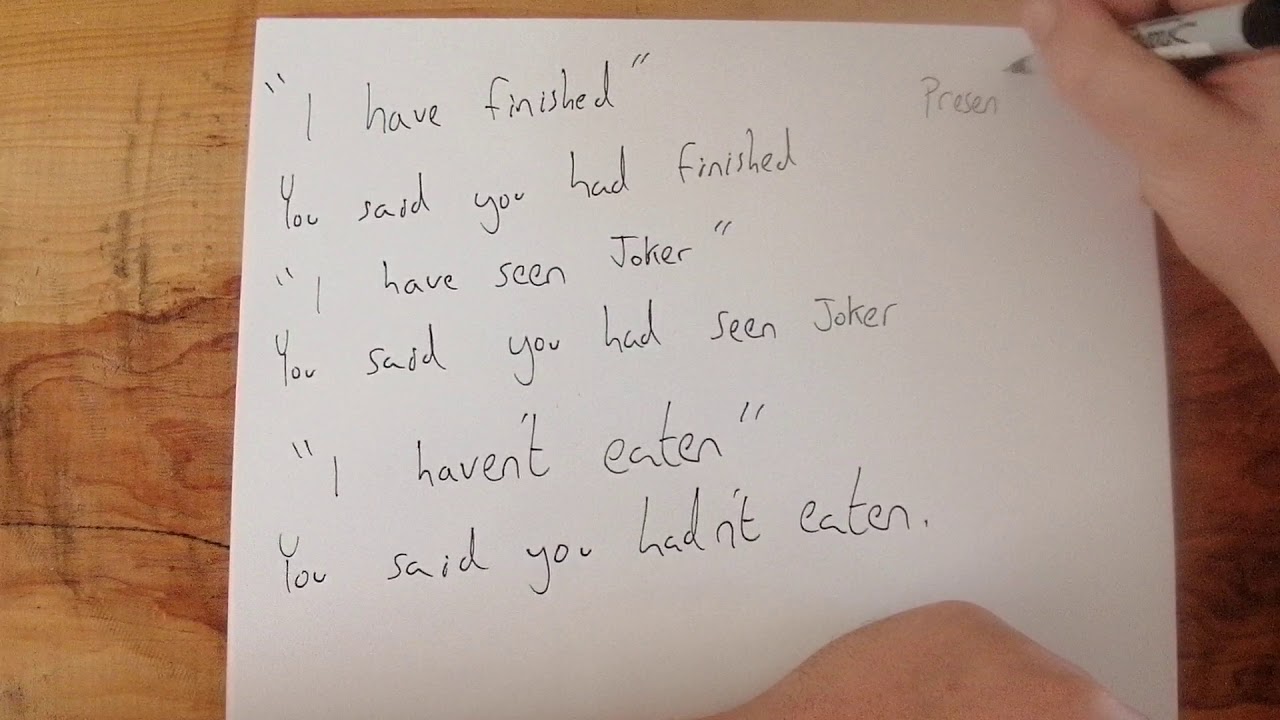 "I have finished" Presen
You said you had finished
"I have seen Joker"
You said you had seen Joker
"I haven't eaten"
You said you hadn't eaten.